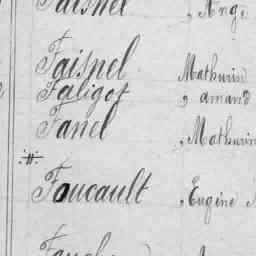 Faisnel , Ange
Faisnel Mathurin
Faligot , amand
Fanel , Mathurin
Foucault , Eugine